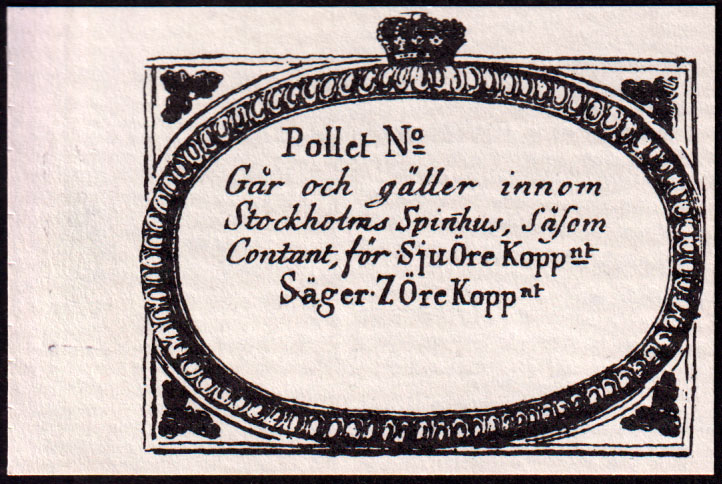 Pollet Nº
Går och gäller innom
Stockholms Spin̄hus, såſom
Contant, för Sju Öre Koppnt
Säger 7 Öre Koppnt